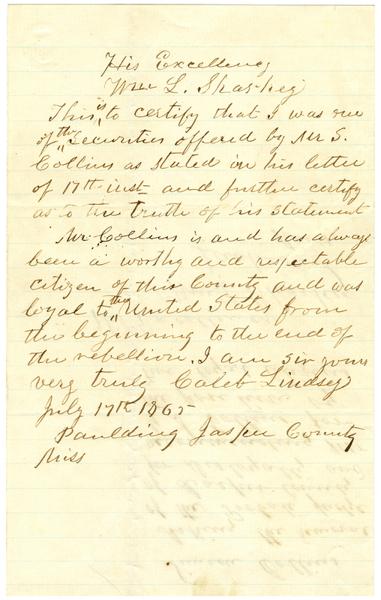 His Excellency
Wm L. Sharkey
This is to certify that I was one
of the Securities offered by Mr S.
Collins as stated in his letter
of 17th inst and further certify
as to the truth of his statement
Mr Collins is and has always
been a worthy and respectable
citizen of this County and was
loyal to the United States from
the beginning to the end of
the rebellion. I am sir yours
very truly Caleb Lindsey
July 17th 1865
Paulding Jasper County
Miss